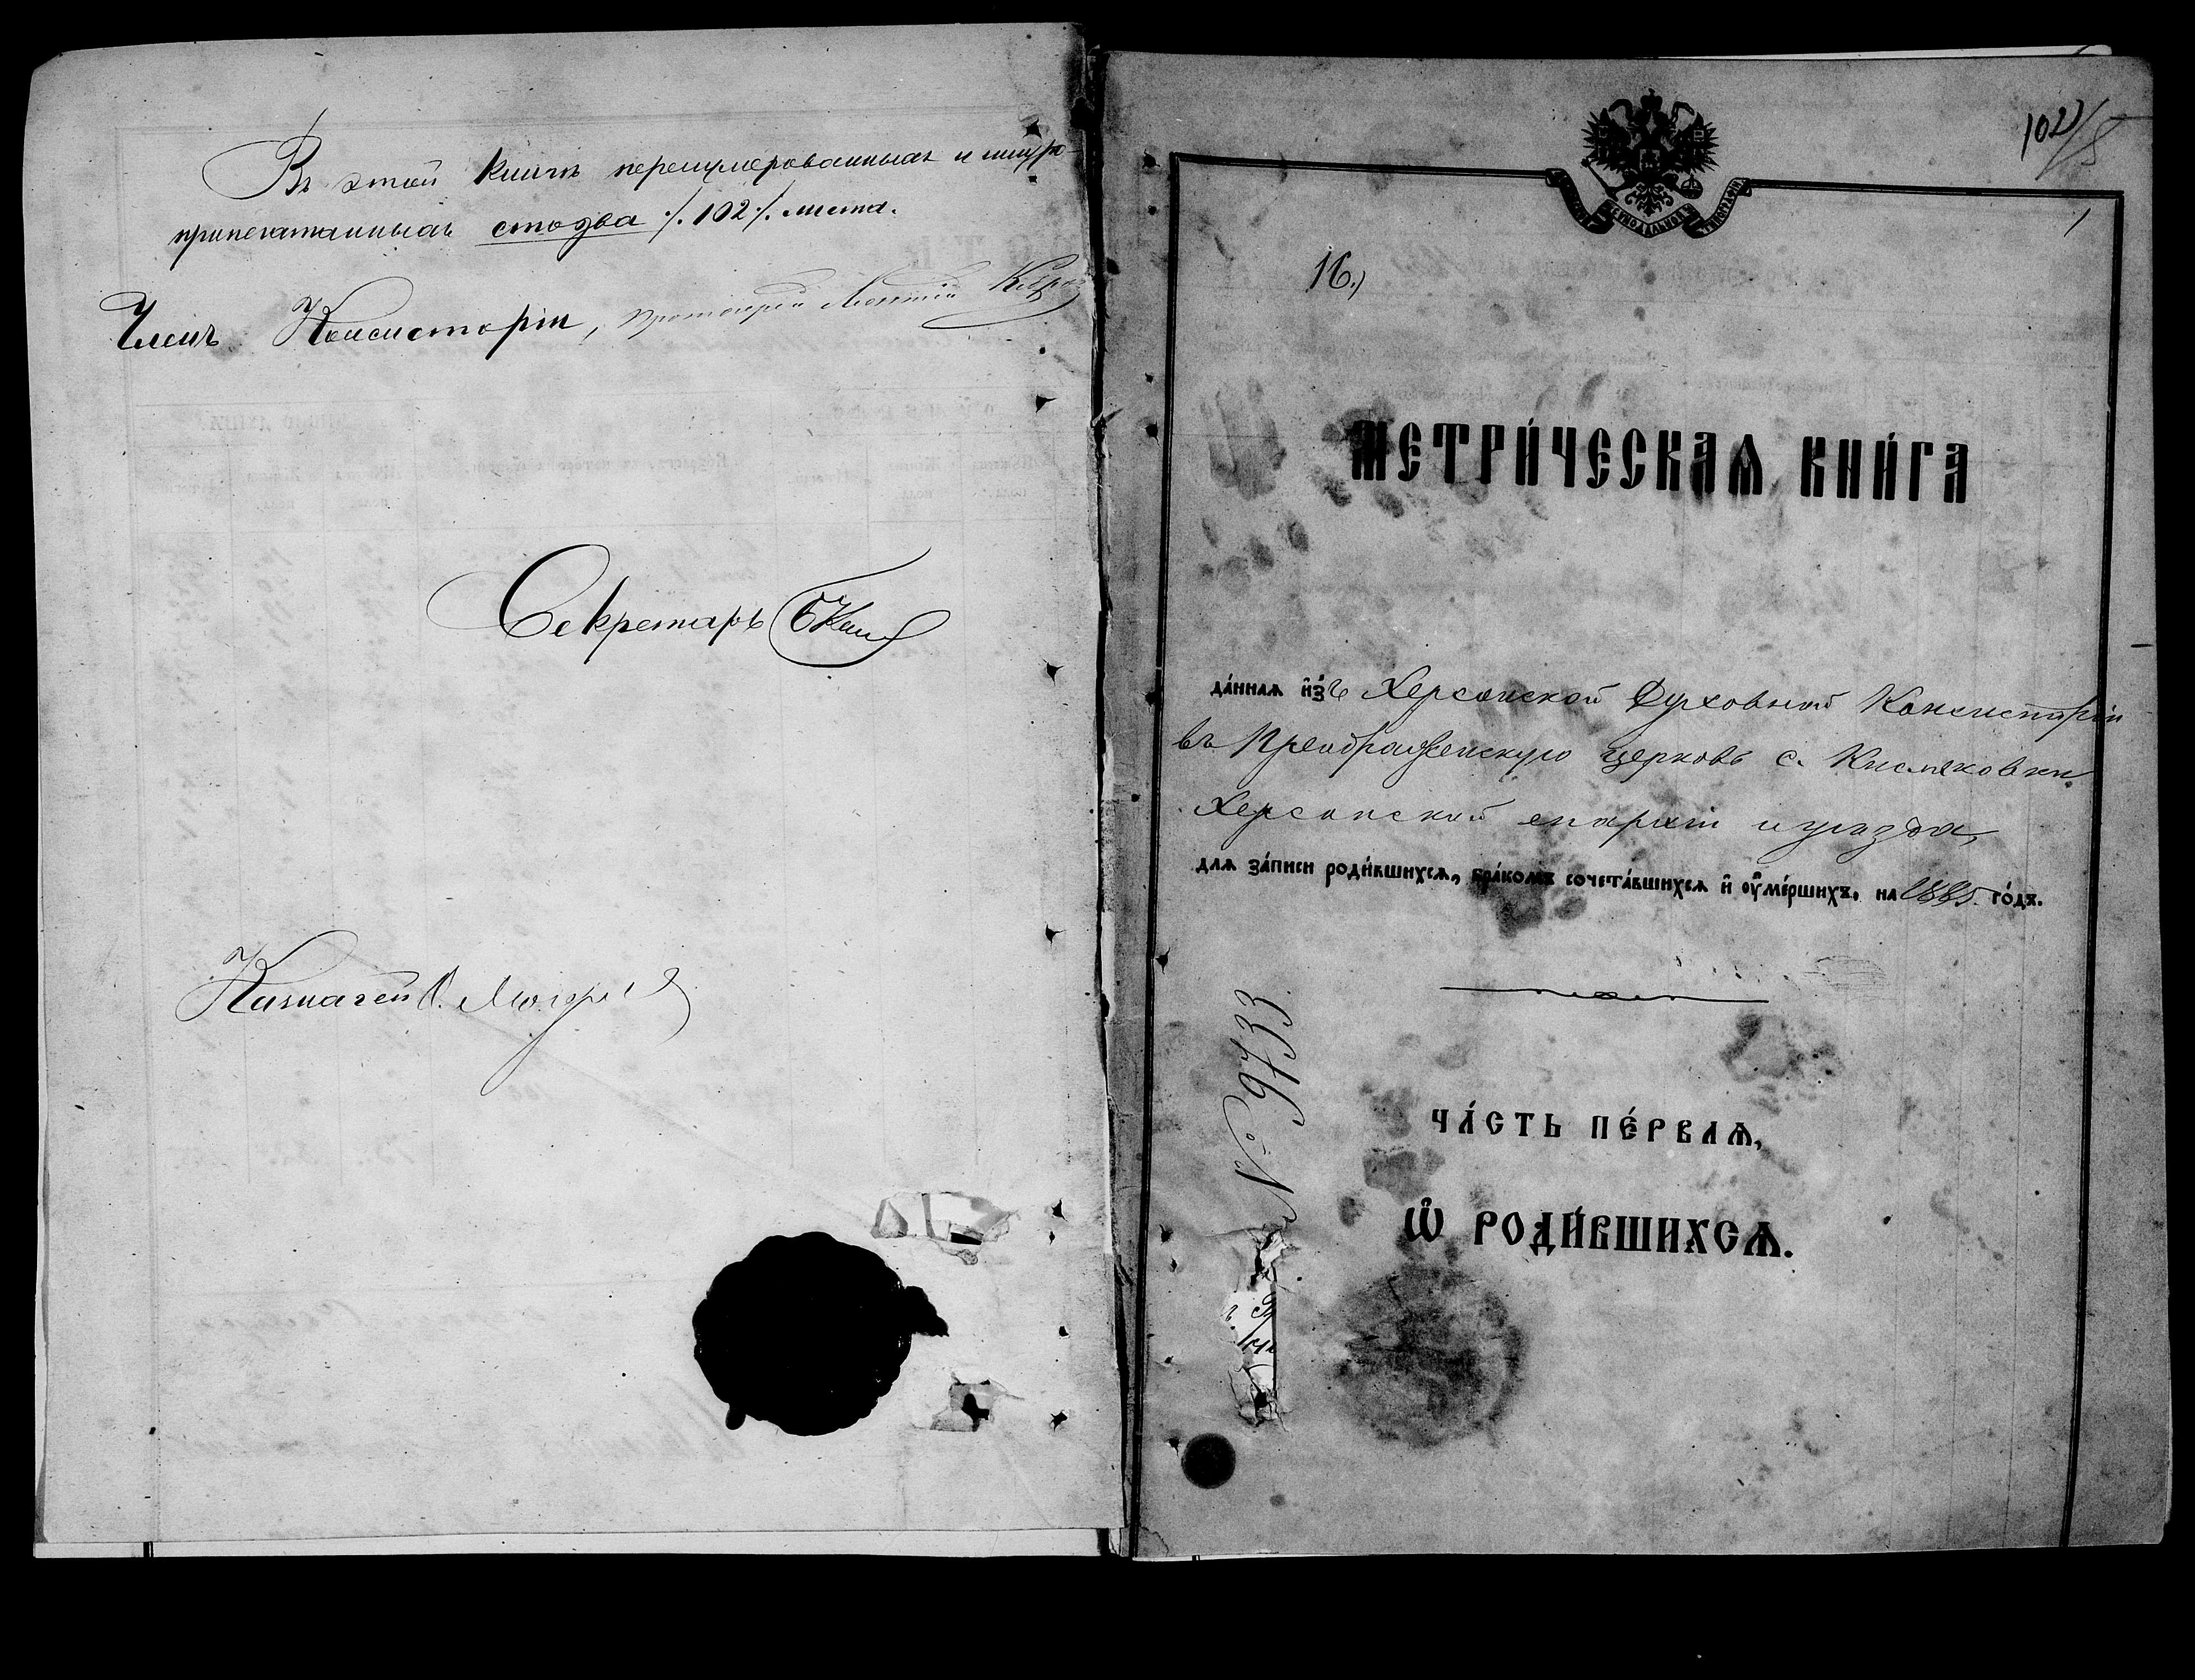 Въ этой книгѣ перенумерованныхъ и шнуро-
припечатанныхъ сто два ./. 102 ./. листа.
Членъ Консисторіи, протоіерей
Секретарь
Казначей
102/
1
16.)
МЕТРИ́ЧЕСКАѦ КНИ́ГА
да́ннаѧ и҆зъ Херсонской Духовной Консисторіи
въ Преображенскую церковь с. Кисляковки
Херсонской епархіи и уѣзда,
для за́писи роди́вшихсѧ, бра́комъ сочета́вшихсѧ и҆ оу҆ме́ршихъ, на 1885. го́дъ.
№ 9733
ЧА́СТЬ ПЕ́РВАѦ,
Ѽ РОДИ́ВШИХСѦ.